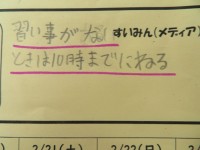 習い事がな すいみん(メディア)
ときは10時までにねる
2/21(土) 2/22(日)